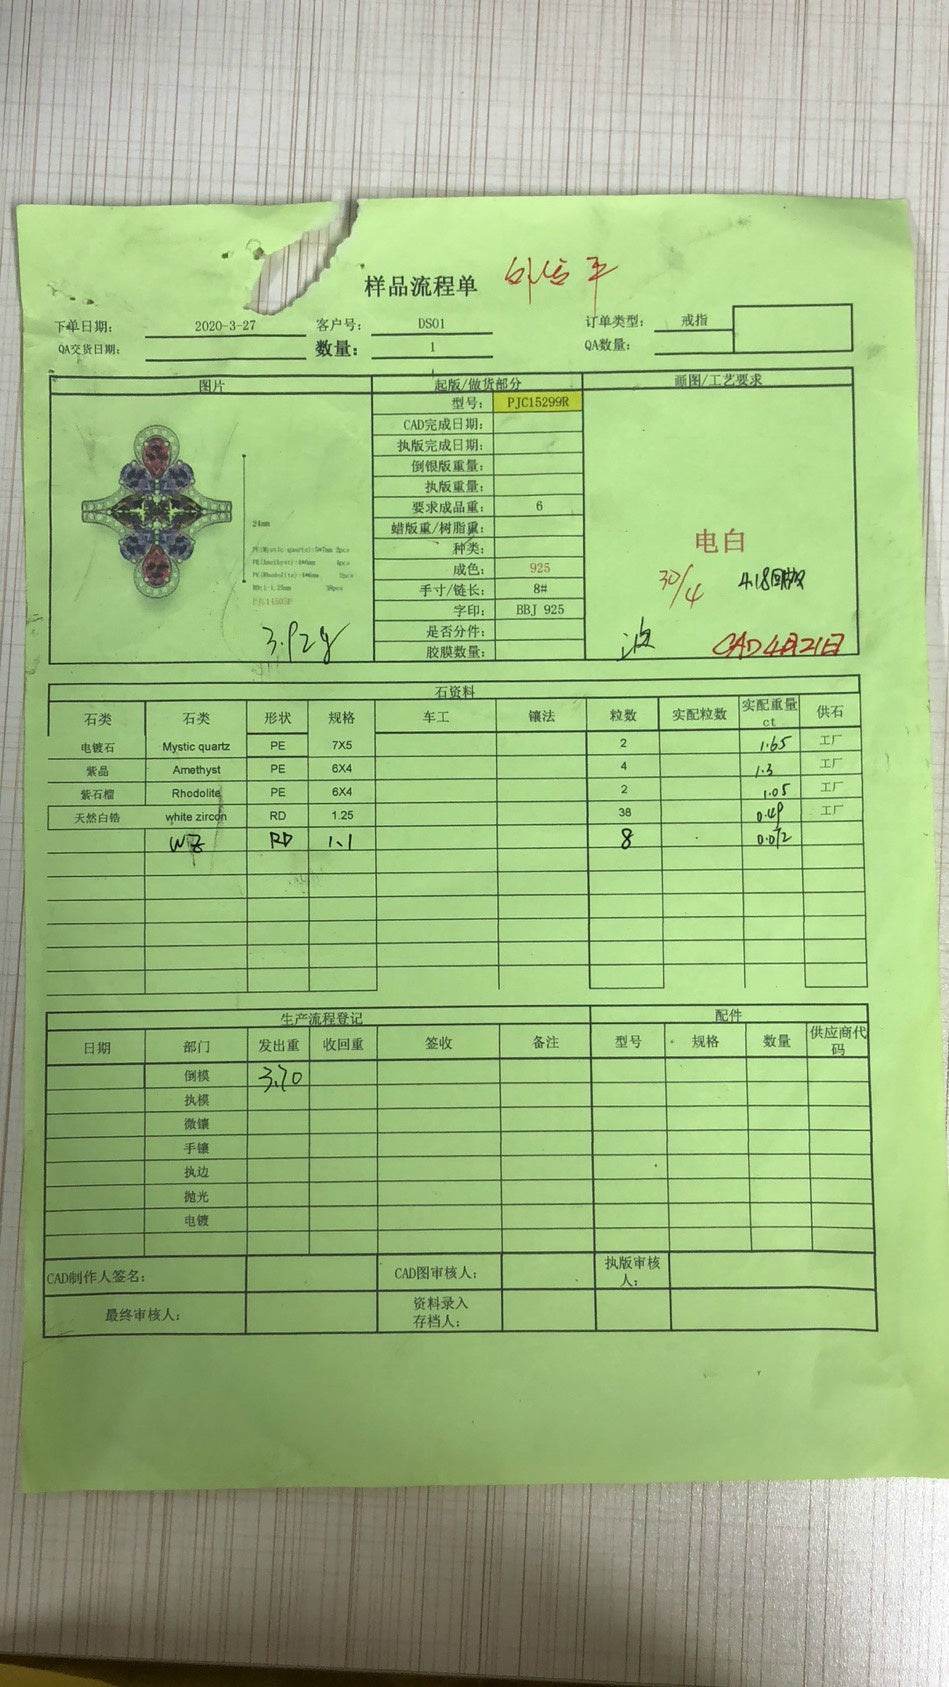 样品流程单
下单日期： 2020-3-27 客户号： DS01 订单类型： 戒指
QA交货日期： 数量： 1 QA数量：
图片 起版/做货部分 画图/工艺要求
型号： PJC15299R
CAD完成日期：
执版完成日期：
倒银版重量：
执版重量：
要求成品重： 6
蜡版重/树脂重：
种类：
成色： 925
手寸/链长： 8#
字印： BBJ 925
是否分件：
胶膜数量：
24mm
PE(Mystic quartz):5*7mm 2pcs
PE(Amethyst):4*6mm 4pcs
PE(Rhodolite):4*6mm 2pcs
RD:1-1.25mm 38pcs
3.92g
电白
30/4 4.18回
波 CAD4月21日
石资料
石类 石类 形状 规格 车工 镶法 粒数 实配粒数 实配重量ct 供石
电镀石 Mystic quartz PE 7X5 2 1.65 工厂
紫晶 Amethyst PE 6X4 4 1.3 工厂
紫石榴 Rhodolite PE 6X4 2 1.05 工厂
天然白锆 white zircon RD 1.25 38 0.49 工厂
WZ RD 1.1 8 0.072
生产流程登记 配件
日期 部门 发出重 收回重 签收 备注 型号 规格 数量 供应商代码
倒模 3.70
执模
微镶
手镶
执边
抛光
电镀
CAD制作人签名： CAD图审核人： 执版审核人：
最终审核人： 资料录入存档人：